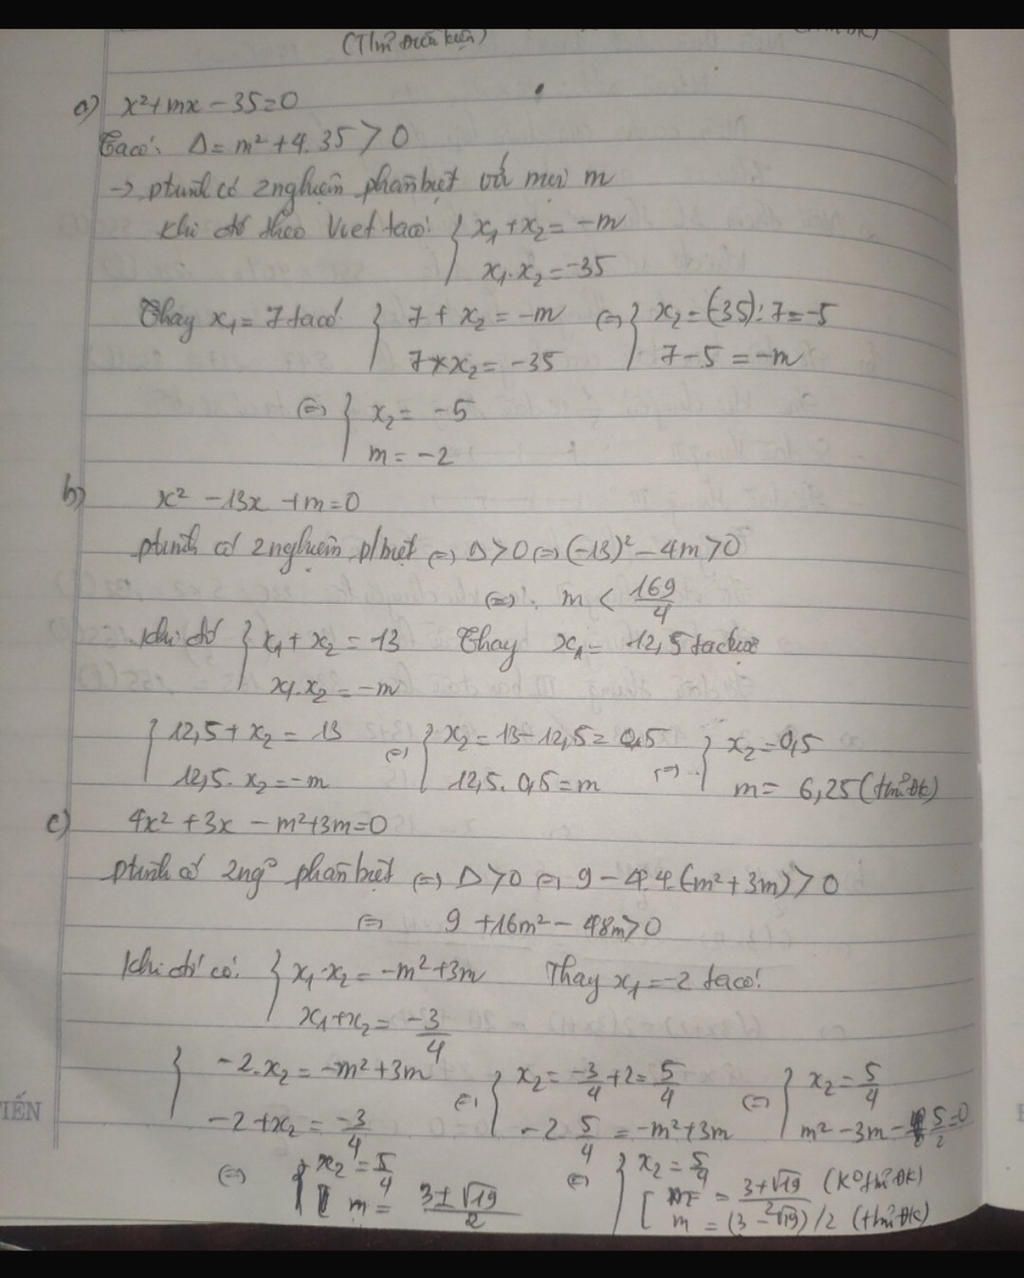 (Thỏa điều kiện)
a) x² + mx - 35 = 0
Ta có: Δ = m² + 4.35 > 0
→ ptrình có 2 nghiệm phân biệt với mọi m
Khi đó theo Viet ta có: { x₁ + x₂ = -m
x₁.x₂ = -35
Thay x₁ = 7 ta có: { 7 + x₂ = -m ⇔ { x₂ = (-35):7 = -5
7 × x₂ = -35 7 - 5 = -m
⇔ { x₂ = -5
m = -2
b) x² - 13x + m = 0
ptrình có 2 nghiệm p/biệt ⇔ Δ > 0 ⇔ (-13)² - 4m > 0
⇔ m < 169/4
Khi đó { x₁ + x₂ = 13 Thay x₁ = 12,5 ta được
x₁.x₂ = -m
{ 12,5 + x₂ = 13 ⇔ { x₂ = 13 - 12,5 = 0,5 ⇔ { x₂ = 0,5
12,5.x₂ = -m 12,5.0,5 = m m = 6,25 (thỏa ĐK)
c) 4x² + 3x - m² + 3m = 0
ptrình có 2 ngº phân biệt ⇔ Δ > 0 ⇔ 9 - 4.4.(-m² + 3m) > 0
⇔ 9 + 16m² - 48m > 0
Khi đó có: { x₁.x₂ = -m² + 3m Thay x₁ = -2 ta có:
x₁ + x₂ = -3/4
{ -2.x₂ = -m² + 3m ⇔ { x₂ = -3/4 + 2 = 5/4 ⇔ { x₂ = 5/4
-2 + x₂ = -3/4 -2.5/4 = -m² + 3m m² - 3m - 5/2 = 0
⇔ { x₂ = 5/4 ⇔ { x₂ = 5/4
[ m = 3±√19/2 [ m = 3+√19/2 (Kº thỏa ĐK)
m = (3-√19)/2 (thỏa ĐK)
TIẾN